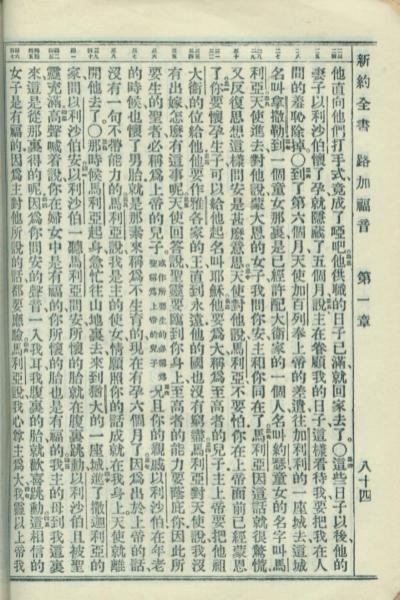 新約全書 路加福音 第一章 八十四
他直向他們打手式竟成了啞吧他供職的日子已滿就回家去了〇這些日子以後他的
妻子以利沙伯懷了孕就隱藏了五個月說主在眷顧我的日子這樣看待我要把我在人
間的羞恥除掉〇到了第六個月天使加百列奉上帝的差遣往加利利的一座城去這城
名叫拿撒勒到一個童女那裏是已經許配大衛家的一個人名叫約瑟童女的名字叫馬
利亞天使進去對他說蒙大恩的女子我問你安主和你同在了馬利亞因這話就很驚慌
又反復思想這樣問安是甚麼意思天使對他說馬利亞不要怕你在上帝面前已經蒙恩
了你要懷孕生子可以給他起名叫耶穌他要爲大稱爲至高者的兒子主上帝要把他祖
大衛的位給他他要作雅各家的王直到永遠他的國也沒有窮盡馬利亞對天使說我沒
有出嫁怎麼有這事呢天使回答說聖靈要臨到你身上至高者的能力要蔭庇你因此所
要生的聖者必稱爲上帝的兒子 或作所要生的必稱爲聖稱爲上帝的兒子 況且你的親戚以利沙伯在年老
的時候也懷了男胎就是那素來稱爲不生育的現在有孕六個月了因爲出於上帝的話
沒有一句不帶能力的馬利亞說我是主的使女情願照你的話成就在我身上天使就離
開他去了〇那時候馬利亞起身急忙往山地裏去來到猶大的一座城進了撒迦利亞的
家問以利沙伯安以利沙伯一聽馬利亞問安所懷的胎就在腹裏跳動以利沙伯且被聖
靈充滿高聲喊着說你在婦女中是有福的你所懷的胎也是有福的我主的母到我這裏
來這是從那裏得的呢因爲你問安的聲音一入我耳我腹裏的胎就歡喜跳動這相信的
女子是有福的因爲主對他所說的話都要應驗馬利亞說我心尊主爲大我靈以上帝我